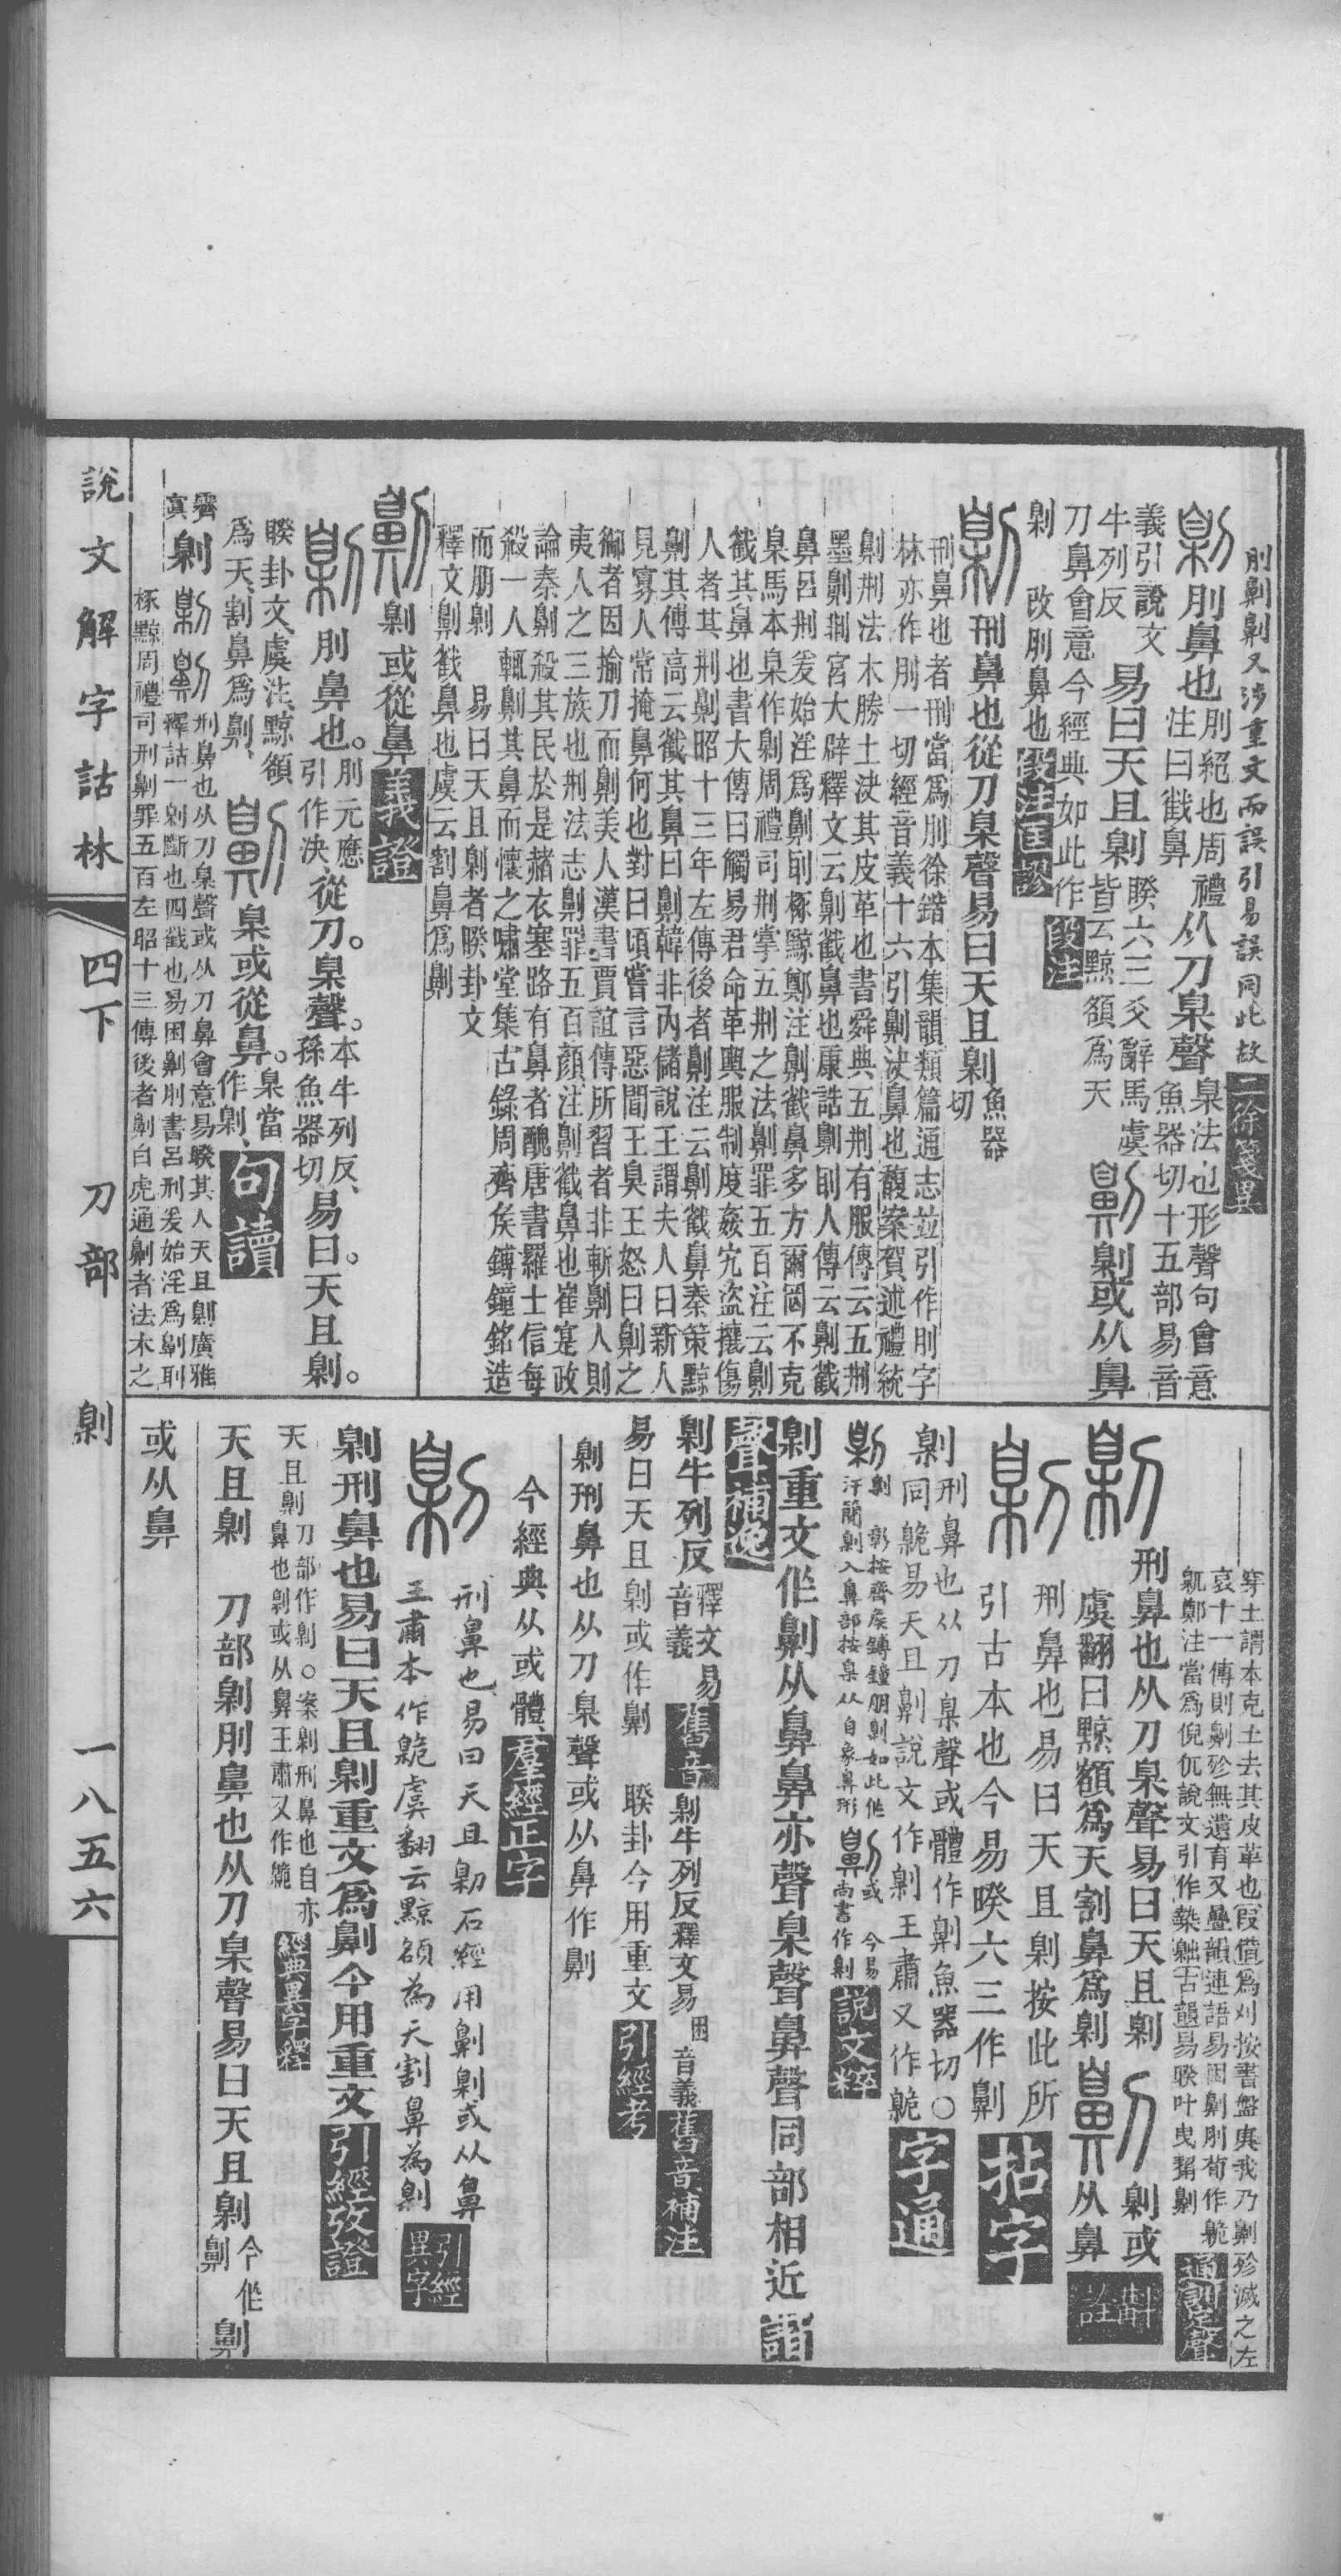 刖劓劓又涉重文而誤引易誤同此故 二徐箋異
劓 刖鼻也 刖絕也周禮注曰截鼻 从刀臬聲 臬法也形聲句會意魚器切十五部易音
義引說文牛列反 易曰天且劓 睽六三爻辭馬虞皆云黥額爲天 劓 劓或从鼻
刀鼻會意今經典如此作 段注
劓 改刖鼻也 段注匡謬
劓 刑鼻也從刀臬聲易曰天且劓 魚器切
刑鼻也者刑當爲刖徐鍇本集韻類篇通志竝引作刖字
林亦作刖一切經音義十六引劓決鼻也馥案賀述禮統
劓荆法木勝土決其皮革也書舜典五荆有服傳云五荆
墨劓剕宮大辟釋文云劓截鼻也康誥劓刵人傳云劓截
鼻呂荆爰始淫爲劓刵椓黥鄭注劓截鼻多方爾罔不克
臬馬本臬作劓周禮司荆掌五荆之法劓罪五百注云劓
截其鼻也書大傳曰觸易君命革輿服制度姦宄盜攘傷
人者其荆劓昭十三年左傳後者劓注云劓截鼻秦策黥
劓其傅高云截其鼻曰劓韓非內儲說王謂夫人曰新人
見寡人常掩鼻何也對曰頃嘗言惡聞王臭王怒曰劓之
御者因揄刀而劓美人漢書賈誼傳所習者非斬劓人則
夷人之三族也荆法志劓罪五百顏注劓截鼻也崔寔政
論秦劓殺其民於是赭衣塞路有鼻者醜唐書羅士信每
殺一人輒劓其鼻而懷之嘯堂集古錄周齊矦鎛鐘銘造
而朋劓 易曰天且劓者睽卦文
釋文劓截鼻也虞云割鼻爲劓
劓 劓或從鼻 義證
劓 刖鼻也。刖元應引作決、從刀。臬聲。本牛列反、孫魚器切 易曰。天且劓。
睽卦文、虞注、黥額爲天、割鼻爲劓、 劓 臬或從鼻。臬當作劓、 句讀
劓 劓 劓 刑鼻也从刀臬聲或从刀鼻會意易睽其人天且劓廣雅釋詁一劓斷也四截也易困劓刖書呂刑爰始淫爲劓刵
椓黥周禮司刑劓罪五百左昭十三傳後者劓白虎通劓者法木之
穿土謂木克土去其皮革也 叚借爲刈按書盤庚我乃劓殄滅之左
哀十一傳則劓殄無遺育又疊韻連語易困劓刖荀作臲
䡾鄭注當爲倪㐳說文引作槷䵳 古韻易睽叶曳掣劓 通訓定聲
劓 刑鼻也从刀臬聲易曰天且劓 劓 劓或
虞翻曰黥額爲天割鼻爲劓 从鼻 斠詮
劓 刑鼻也易曰天且劓按此所
引古本也今易睽六三作劓 拈字
劓 刑鼻也从刀臬聲或體作劓魚器切〇
同臲易天且劓說文作劓王肅又作臲 字通
劓 劓 彰按齊矦鎛鐘朋劓如此作汗簡劓入鼻部按臬从自象鼻形 劓 或 今易尚書作劓 說文粹
劓重文作劓从鼻鼻亦聲臬聲鼻聲同部相近 諧聲補逸
劓牛列反 釋文易音義 舊音 劓牛列反釋文易困音義 舊音補注
易曰天且劓或作劓 睽卦今用重文 引經考
劓刑鼻也从刀臬聲或从鼻作劓
今經典从或體 羣經正字
劓 刑鼻也易曰天且劓石經用劓劓或从鼻
王肅本作臲虞翻云黥額為天割鼻為劓 引經異字
劓刑鼻也易曰天且劓重文爲劓今用重文 引經攷證
天且劓 刀部作劓。〇案劓刑鼻也自亦鼻也劓或从鼻王肅又作臲 經典異字釋
天且劓 刀部劓刖鼻也从刀臬聲易曰天且劓 今作劓劓
或从鼻
說文解字詁林 四下 刀部 劓 一八五六